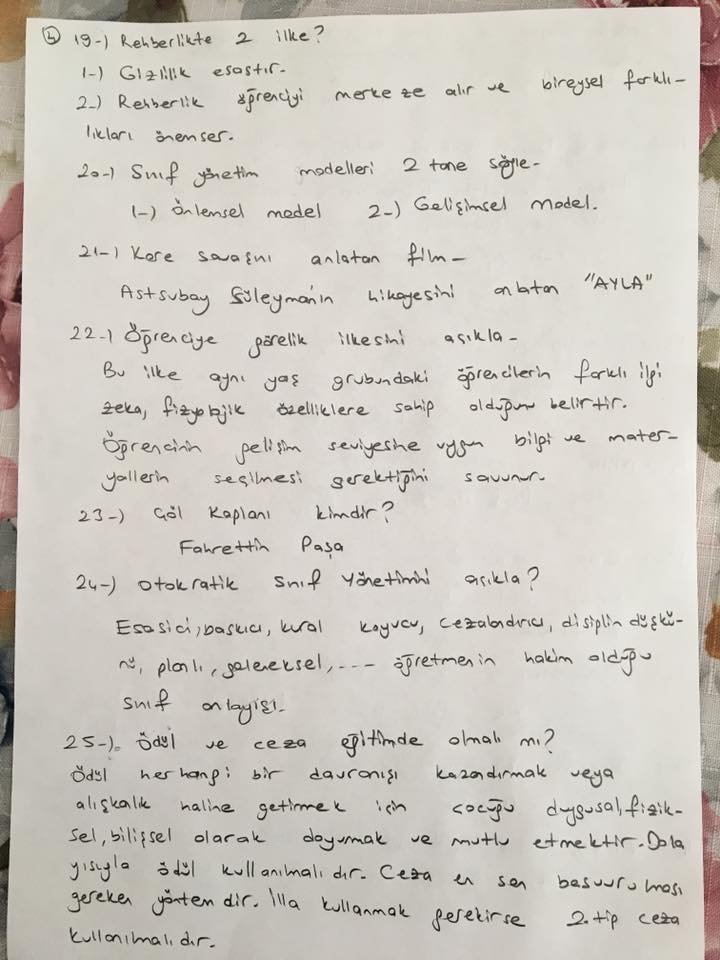 4 19-) Rehberlikte 2 ilke?
1-) Gizlilik esastır.
2-) Rehberlik öğrenciyi merkeze alır ve bireysel farklı-
lıkları önemser.
20-) Sınıf yönetim modelleri 2 tane söyle-
1-) Önlemsel model 2-) Gelişimsel Model.
21-) Kore savaşını anlatan film-
Astsubay Süleyman'ın hikayesini anlatan "AYLA"
22-) Öğrenciye görelik ilkesini açıkla-
Bu ilke aynı yaş grubundaki öğrencilerin farklı ilgi
zeka, fizyolojik özelliklere sahip olduğunu belirtir.
Öğrencinin gelişim seviyesine uygun bilgi ve mater-
yallerin seçilmesi gerektiğini savunur.
23-) Çöl Kaplanı kimdir?
Fahrettin Paşa
24-) Otokratik sınıf yönetimini açıkla?
Esasici, baskıcı, kural koyucu, cezalandırıcı, disiplin düşkü-
nü, planlı, geleneksel, --- öğretmenin hakim olduğu
sınıf anlayışı.
25-). Ödül ve ceza eğitimde olmalı mı?
Ödül herhangi bir davranışı kazandırmak veya
alışkalık haline getirmek için çocuğu duygusal, fizik-
sel, bilişsel olarak doyumak ve mutlu etmektir. Dola
yısıyla ödül kullanılmalıdır. Ceza en son başvurulması
gereken yöntemdir. İlla kullanmak gerekirse 2. tip ceza
kullanılmalıdır.